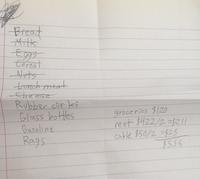 Bread
Milk
Eggs
Cereal
Nuts
Lunch meat
Cheese
Rubber
Glass bottles
Gasoline
Rags
groceries $120
rent $422/2=$211
cable $50/2=$25